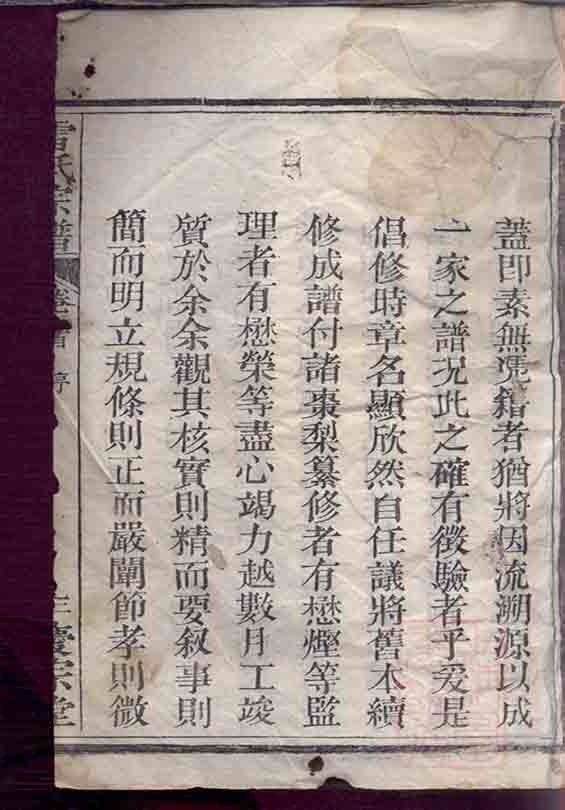 蓋卽素無凴籍者猶將因流溯源以成
一家之譜况此之確有徵驗者乎爰是
倡修時章名顯欣然自任議將舊本續
修成譜付諸棗梨纂修者有懋煙等監
理者有懋榮等盡心竭力越數月工竣
質於余余觀其核實則精而要叙事則
簡而明立規條則正而嚴闡節孝則微
氏宗譜
卷首
慶宗堂